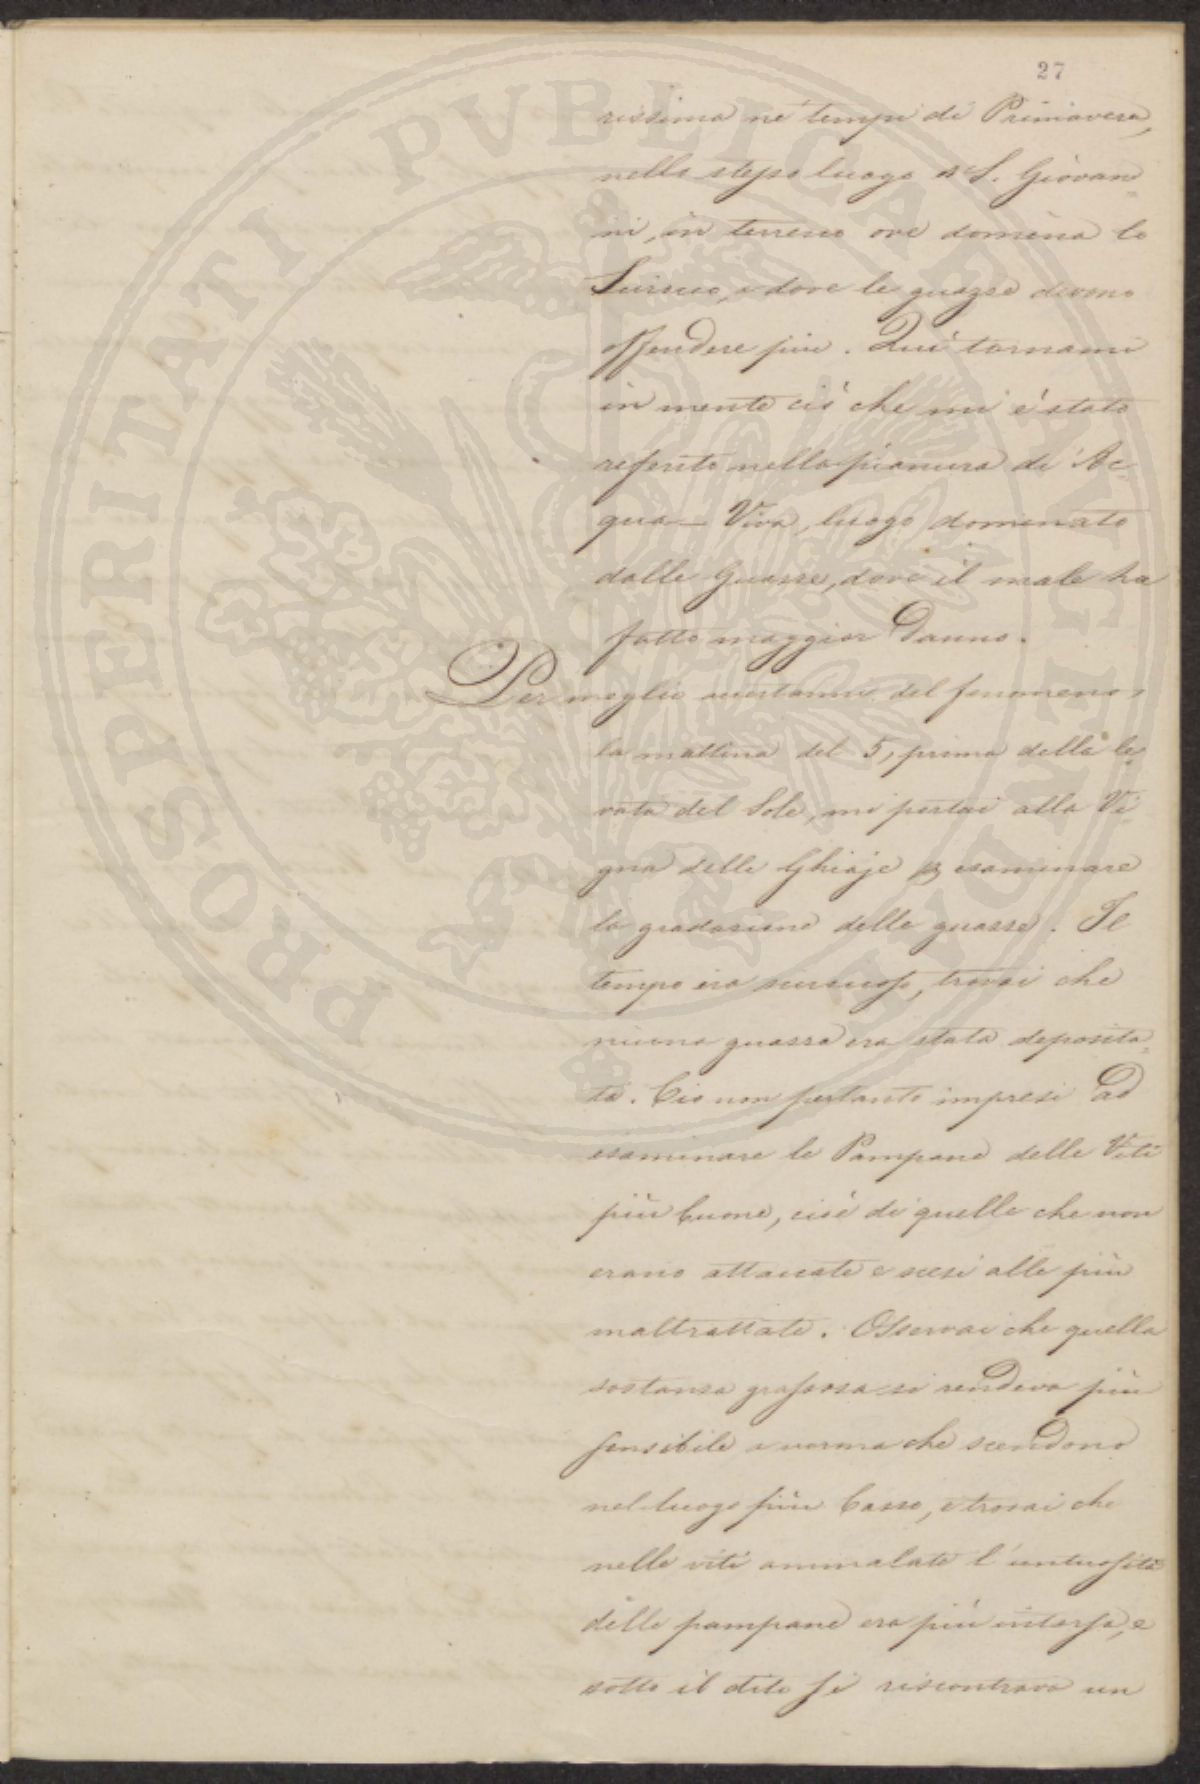 27
rissima ne' tempi di Primavera,
nello stesso luogo di S. Giovan=
ni, in terreno ove domina lo
Scirocco, e dove le guazze devono
offendere più. Qui tornami
in mente ciò che mi è stato
referito nella pianura di Ac=
qua-Viva, luogo dominato
dalle Guazze, dove il male ha
fatto maggior Danno.
Per meglio accertarmi del fenomeno,
la mattina del 5, prima della le=
vata del Sole, mi portai alla Vi=
gna delle Ghiaje p esaminare
la gradazione delle guazze. Il
tempo era sciroccoso, trovai che
niuna guazza era stata deposita=
ta. Cio non pertanto impresi ad
esaminare le Pampane delle Viti
più buone, cioè di quelle che non
erano attaccate e scesi alle più
maltrattate. Osservai che quella
sostanza grassosa si rendeva più
sensibile a norma che scendono
nel luogo più basso, e trovai che
nelle viti ammalate l'untuosità
delle pampane era più intensa, e
sotto il dito si riscontrava un
PROSPERITATI PVBLICAE AVGENDAE